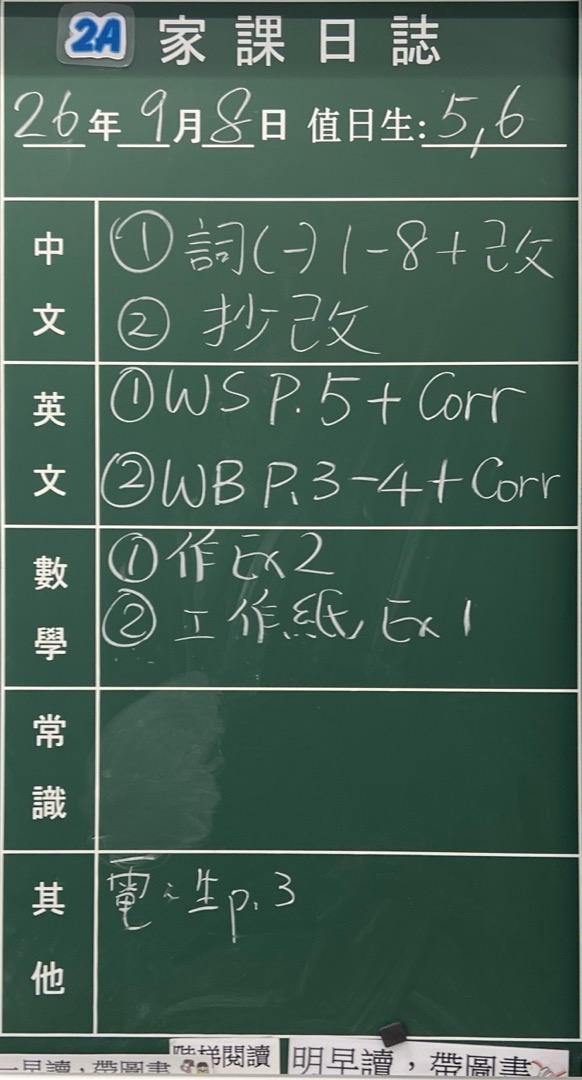 2A 家課日誌
26年9月8日 值日生:5,6
中文
① 詞(一) 1-8+改
② 抄改
英文
① WS P.5 + Corr
② WB P.3-4 + Corr
數學
① 作 Ex 2
② 工作紙 Ex 1
常識
其他
生 p.3
階梯閱讀
早讀,帶圖書
明早讀,帶圖書